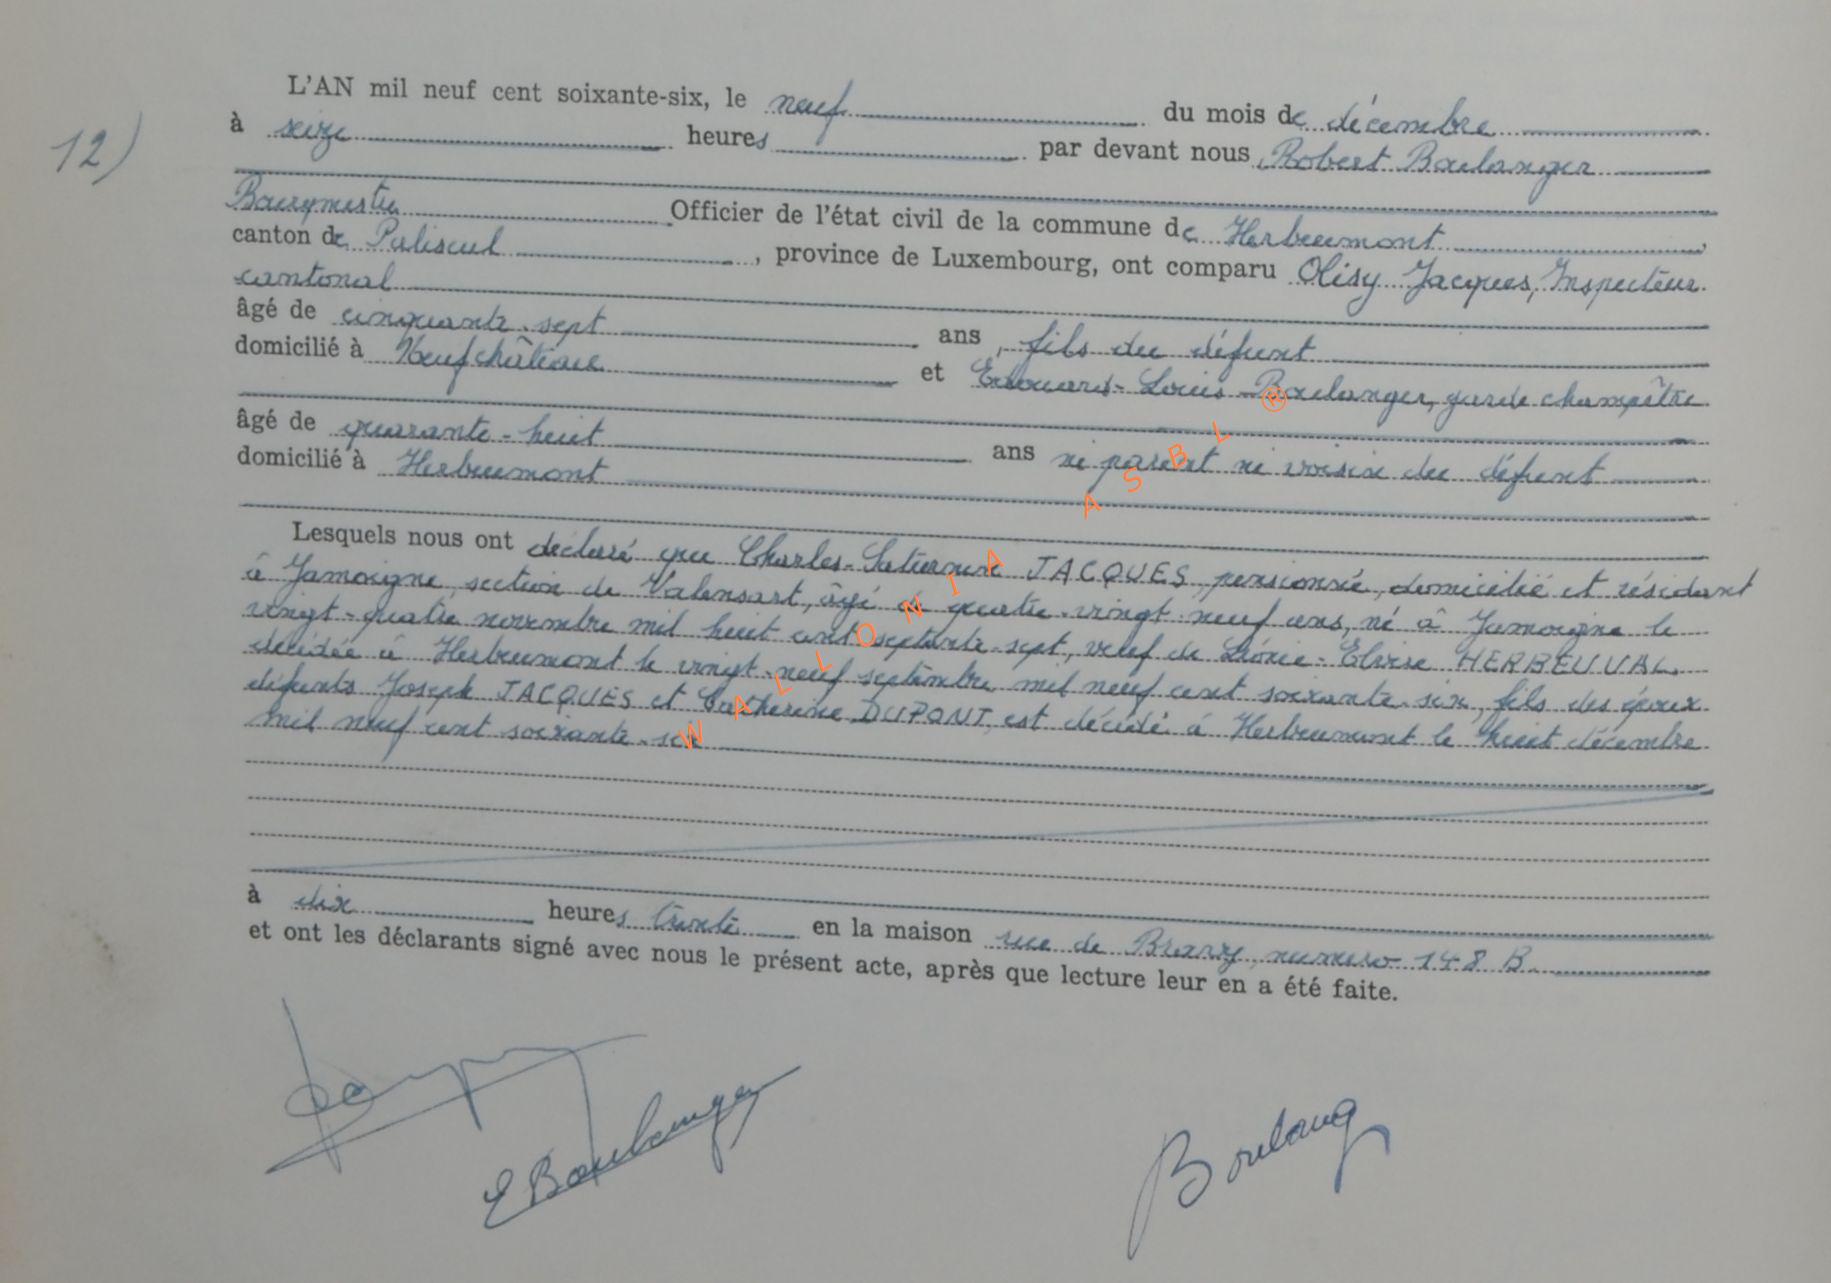 L'AN mil neuf cent soixante-six, le neuf du mois de décembre
12) à seize heures par devant nous, Robert Boulanger
Bourgmestre Officier de l'état civil de la commune de Herbeumont,
canton de Paliseul, province de Luxembourg, ont comparu Olisy Jacques, Inspecteur
cantonal
âgé de cinquante-sept ans, fils du défunt
domicilié à Neufchâteau et Edouard-Louis Boulanger, garde champêtre
âgé de quarante-huit ans ni parent ni voisin du défunt
domicilié à Herbeumont
Lesquels nous ont déclaré que Charles-Saturnin JACQUES, pensionné, domicilié et résidant
à Jamoigne, section de Valansart, âgé de quatre-vingt neuf ans, né à Jamoigne le
vingt-quatre novembre mil huit cent septante-sept, veuf de Léonie-Elvire HERBEUVAL
décédée à Herbeumont le vingt-neuf septembre mil neuf cent soixante-six, fils des époux
défunts Joseph JACQUES et Catherine DUPONT, est décédé à Herbeumont le huit décembre
mil neuf cent soixante-six
à dix heures trente en la maison rue de Bravy, numéro 148 B.
et ont les déclarants signé avec nous le présent acte, après que lecture leur en a été faite.
E Boulanger
Boulang
WALLONIA ASBL ®